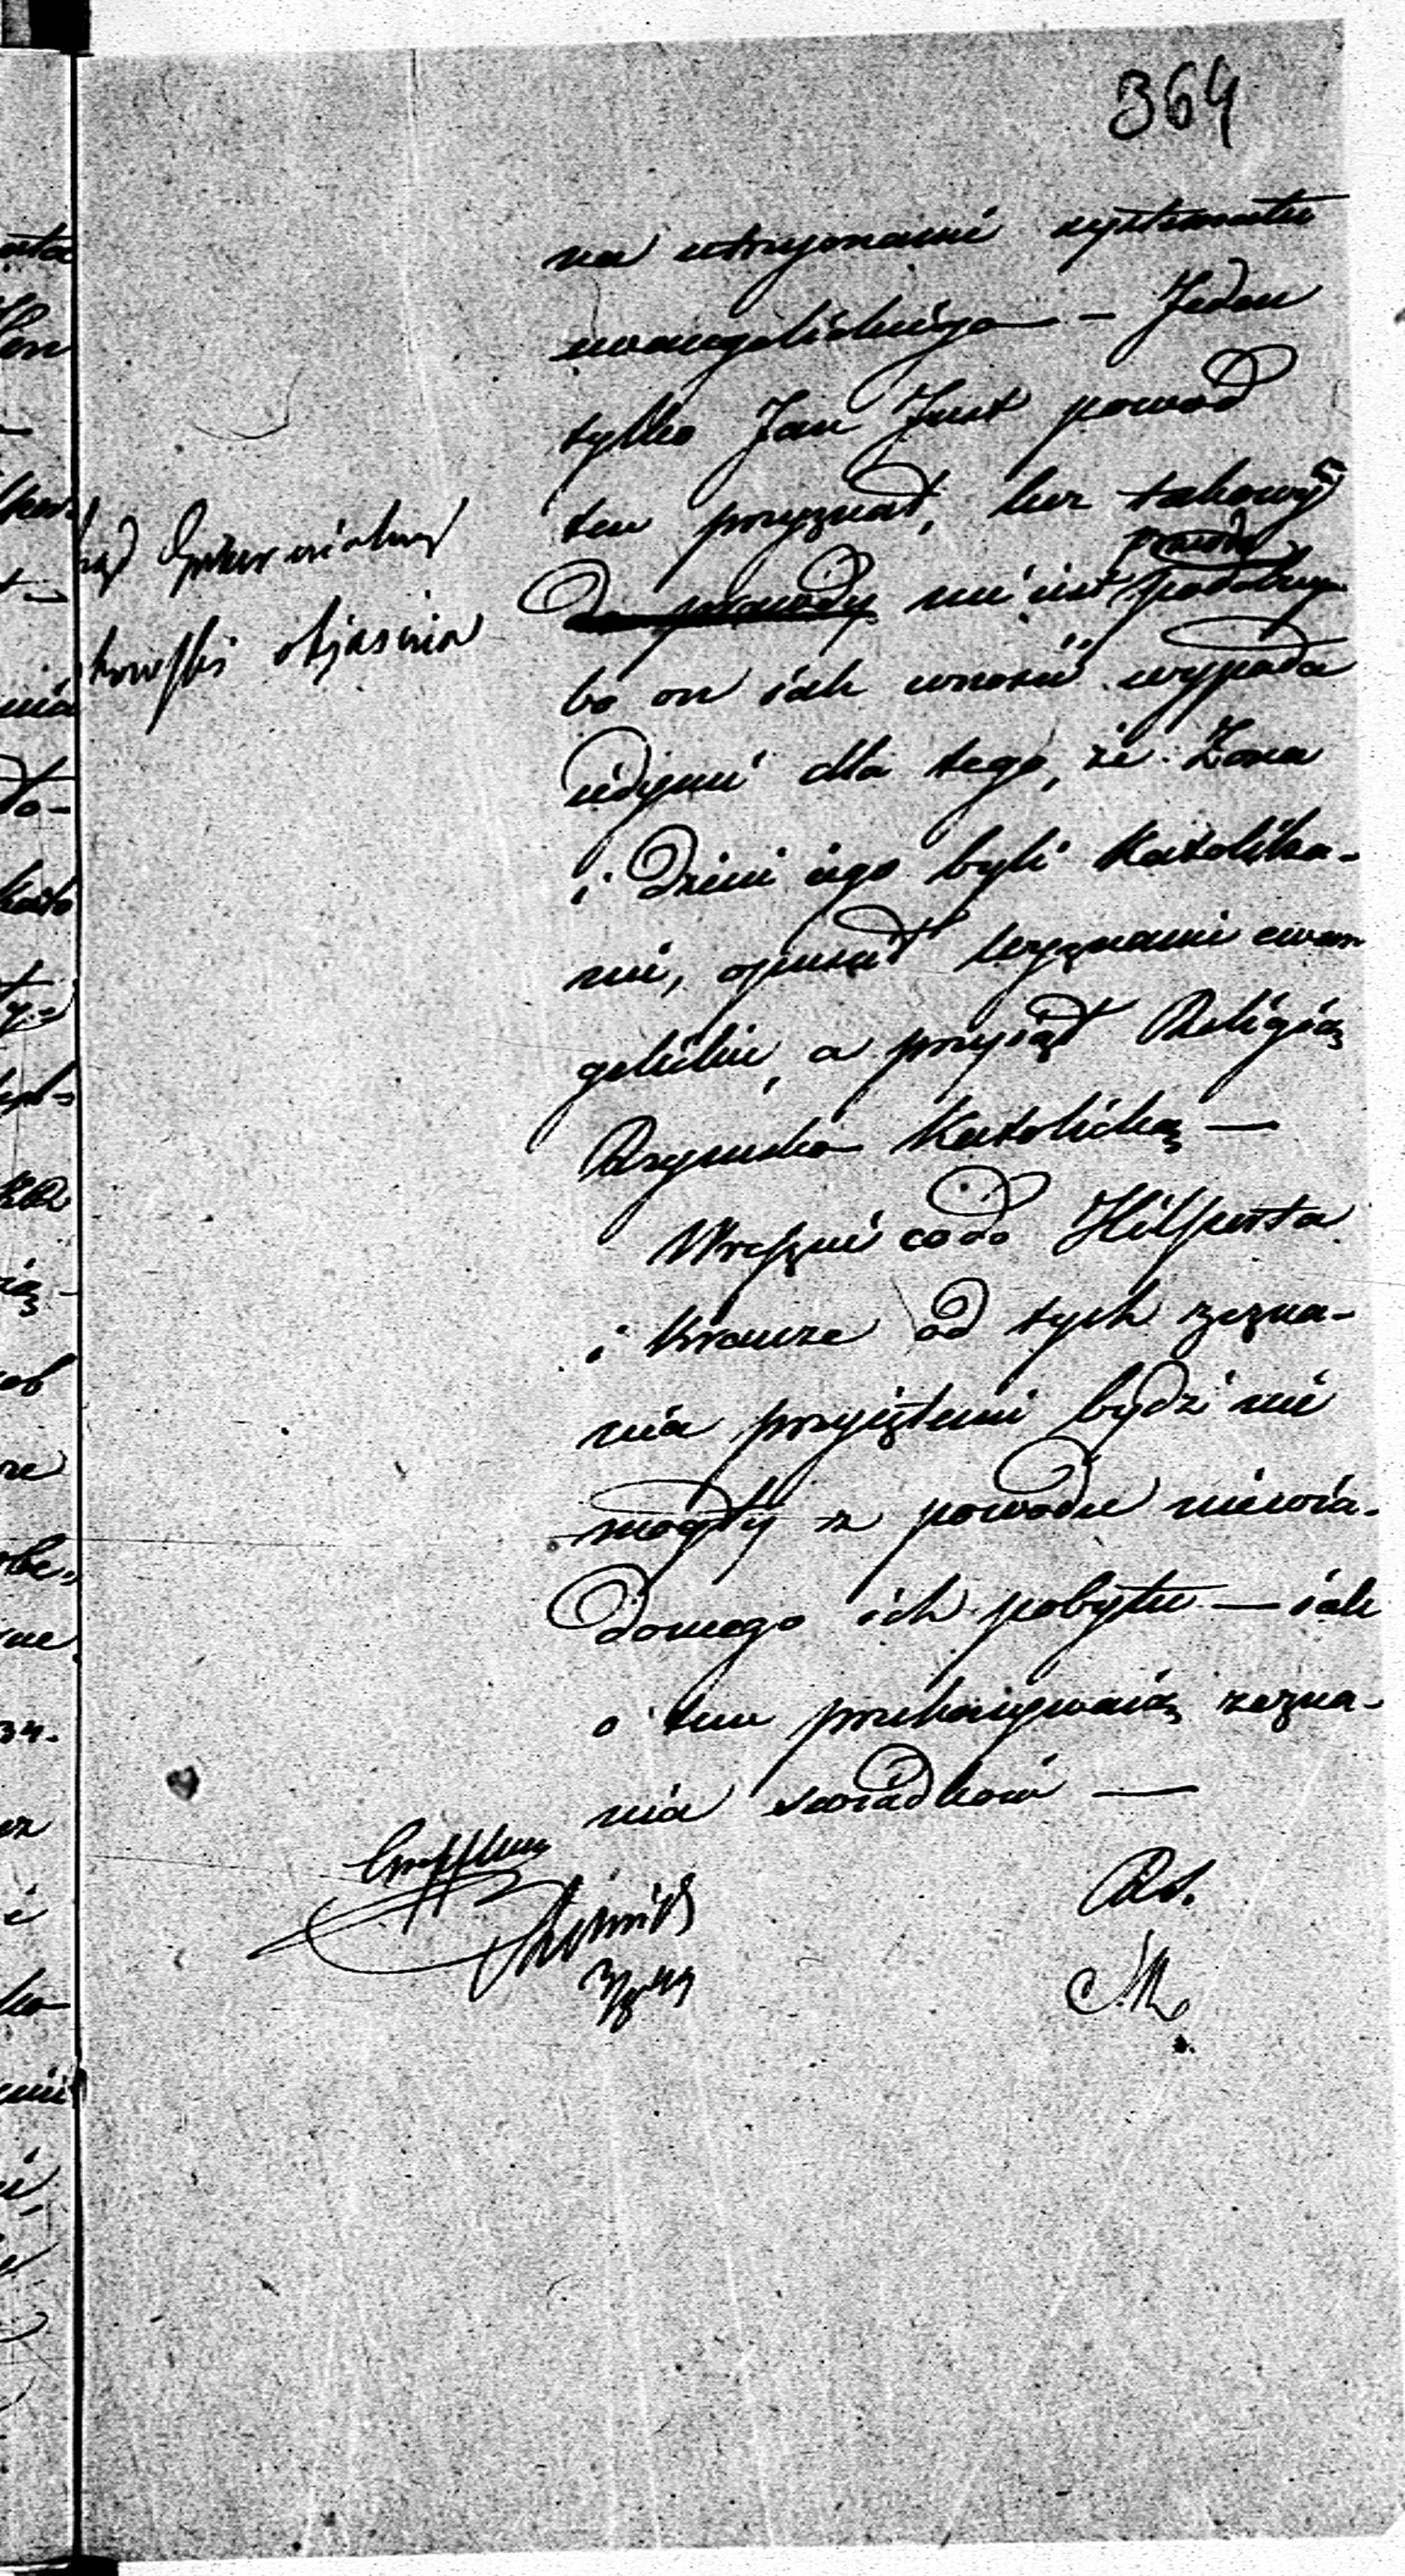 364
na utrzymanie cystematu
ewangelickiego — Jeden
tylko Jan Just powod
ten przyznał, lecz takowy
do prawdy nie iest prawdo podobny
bo on iak wnosić wypada
iedynie dla tego, że Żona
i Dzieci iego byli Katolika-
mi, opuścił wyznanie ewan
gelickie, a przyiął Religią
Rzymsko Katolicką —
Wreszcie co do Hilperta
i Krauze od tych zezna-
nia przyiętemi bydź nie
mogły z powodu niewia-
domego ich pobytu — iak
o tem przekonywaią zezna-
nia swiadków —
Rząd Gubernialny
objasnia